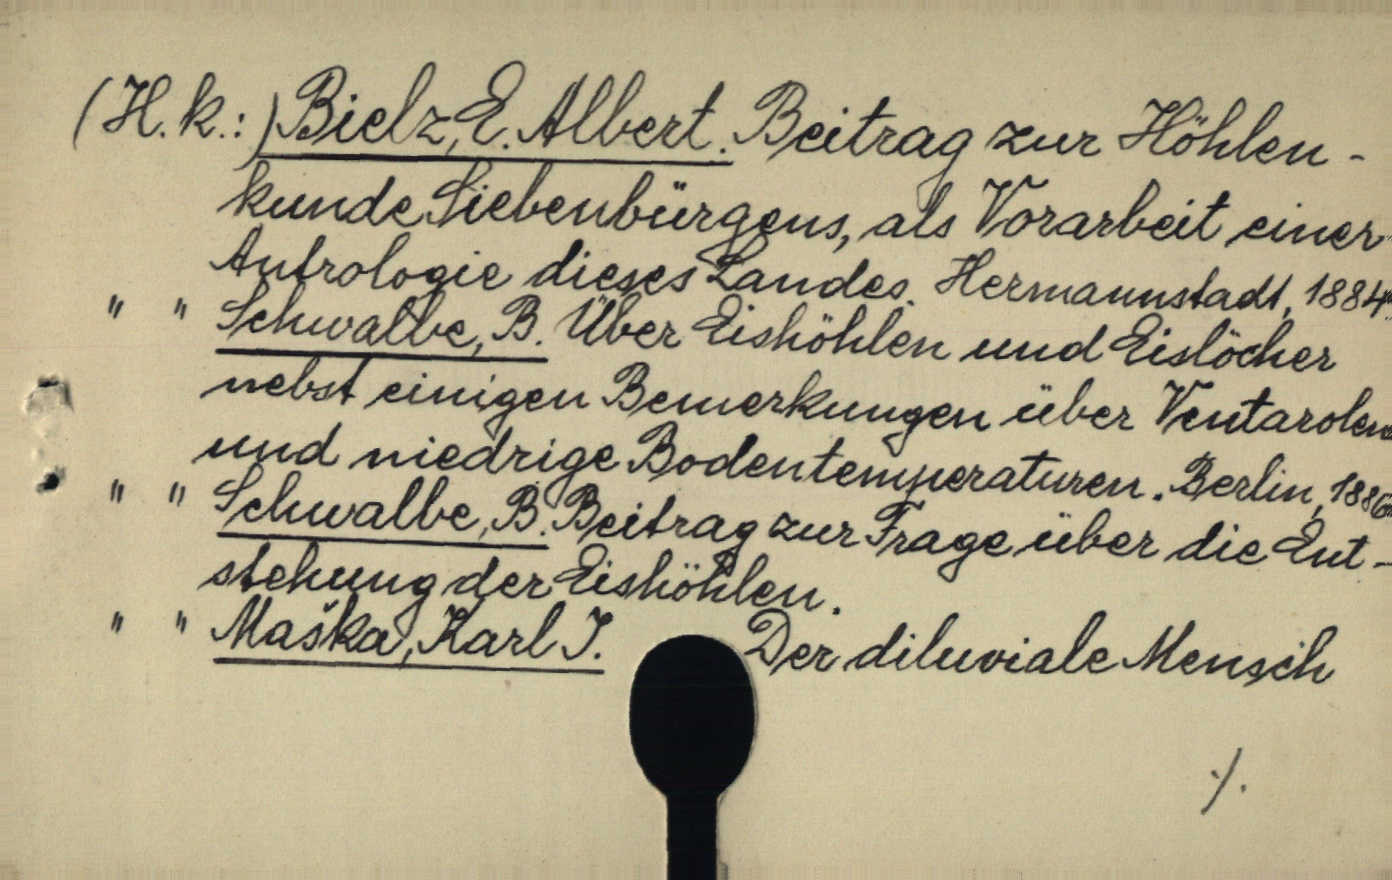 (H.k.:) Bielz, E. Albert. Beitrag zur Höhlen-
kunde Siebenbürgens, als Vorarbeit einer
Antrologie dieses Landes. Hermannstadt, 1884.
" " Schwalbe, B. Über Eishöhlen und Eislöcher
nebst einigen Bemerkungen über Ventarolen
und niedrige Bodentemperaturen. Berlin, 1886.
" " Schwalbe, B. Beitrag zur Frage über die Ent-
stehung der Eishöhlen.
" " Maška, Karl J. Der diluviale Mensch
./.